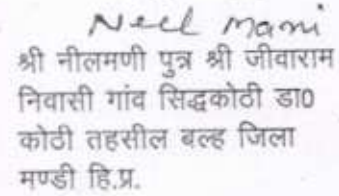 Neel Mani
श्री नीलमणी पुत्र श्री जीवाराम
निवासी गांव सिद्धकोठी डा0
कोठी तहसील बल्ह जिला
मण्डी हि.प्र.